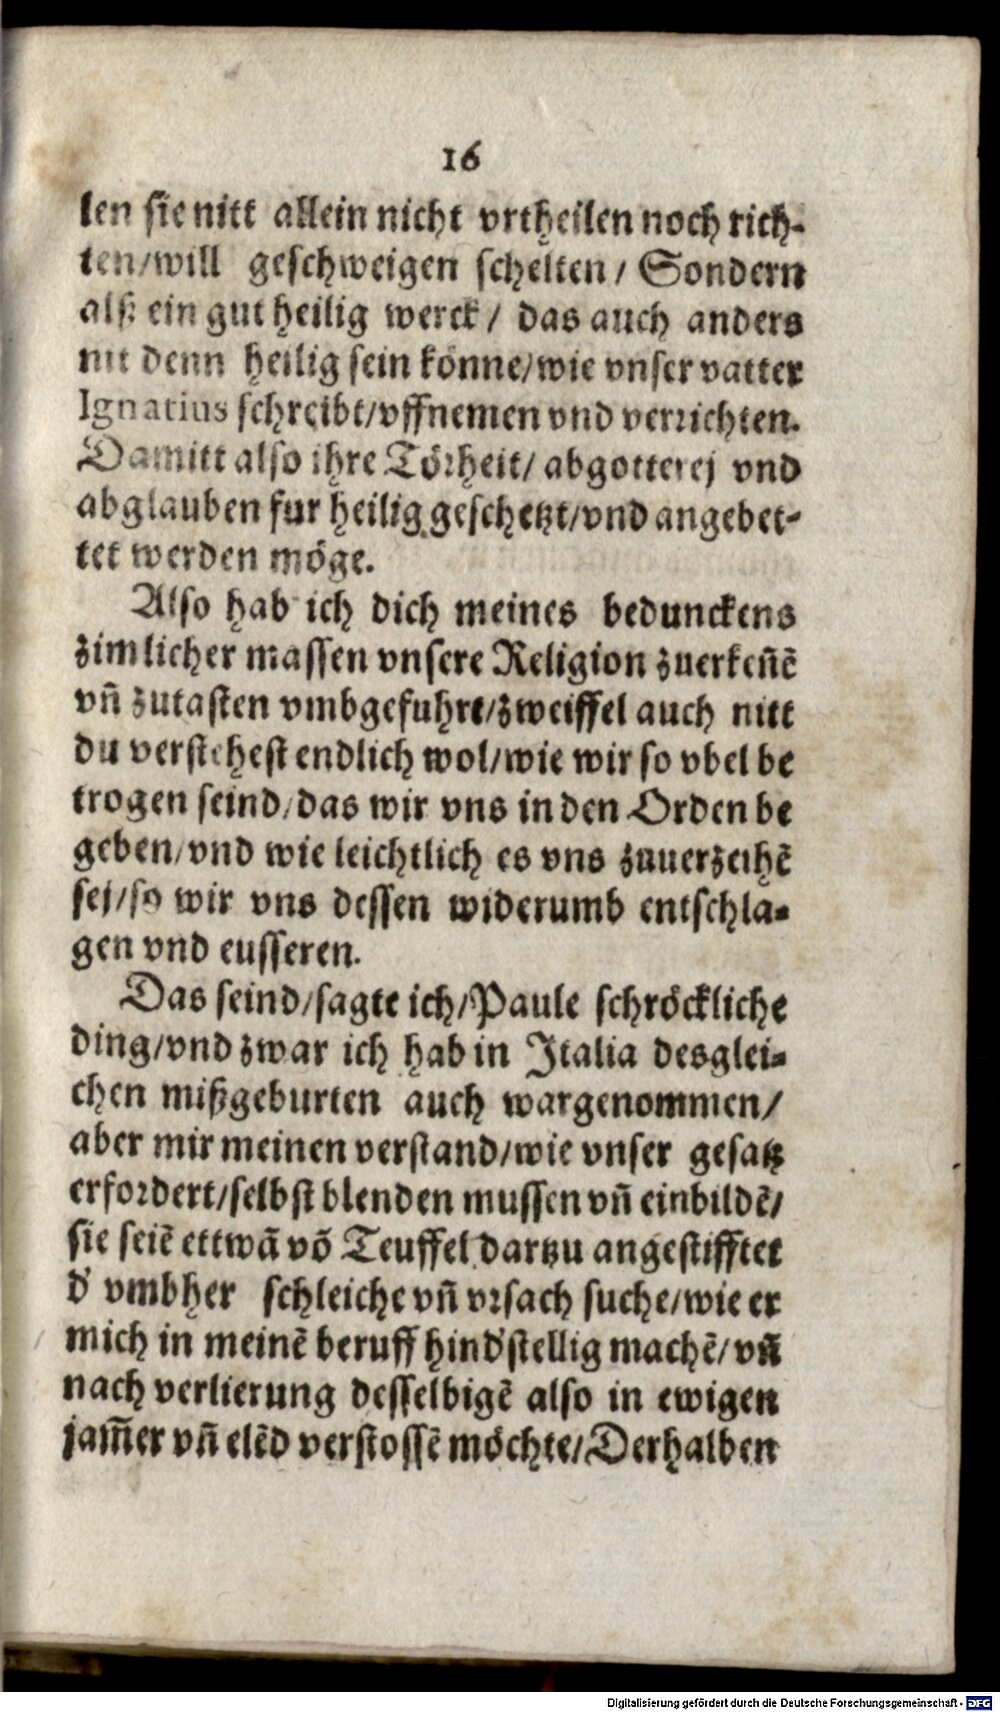 16
len sie nitt allein nicht vrtheilen noch rich-
ten/will geschweigen schelten/ Sondern
alß ein gut heilig werck/ das auch anders
nit denn heilig sein könne/wie vnser vatter
Ignatius schreibt/vffnemen vnd verrichten.
Damitt also ihre Törheit/ abgotterej vnd
abglauben fur heilig geschetzt/vnd angebet-
tet werden möge.
Also hab ich dich meines bedunckens
zimlicher massen vnsere Religion zuerkeñẽ
vñ zutasten vmbgefuhrt/zweiffel auch nitt
du verstehest endlich wol/wie wir so vbel be
trogen seind/das wir vns in den Orden be
geben/vnd wie leichtlich es vns zuuerzeihẽ
sej/so wir vns dessen widerumb entschla-
gen vnd eusseren.
Das seind/sagte ich/Paule schröckliche
ding/vnd zwar ich hab in Italia desglei-
chen mißgeburten auch wargenommen/
aber mir meinen verstand/wie vnser gesatz
erfordert/selbst blenden mussen vñ einbildẽ/
sie seiẽ ettwã võ Teuffel dartzu angestifftet
d' vmbher schleiche vñ vrsach suche/wie er
mich in meinẽ beruff hind'stellig machẽ/vñ
nach verlierung desselbigẽ also in ewigen
jam̃er vñ elẽd verstossẽ möchte/Derhalben
Digitalisierung gefördert durch die Deutsche Forschungsgemeinschaft - DFG